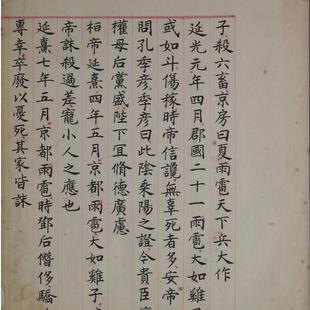 子殺六畜京房曰夏雨雹天下兵大作
延光元年四月郡國二十一雨雹大如雞
或如斗傷稼時帝信讒無辜死者多安帝
問孔季彦季彦曰此陰乘陽之證今貴臣
權母后黨盛陛下宜脩德廣慮
桓帝延熹四年五月京都雨雹大如雞子
帝誅殺過差寵小人之應也
延熹七年五月京都雨雹時鄧后僭侈驕
專幸卒廢以憂死其家皆誅